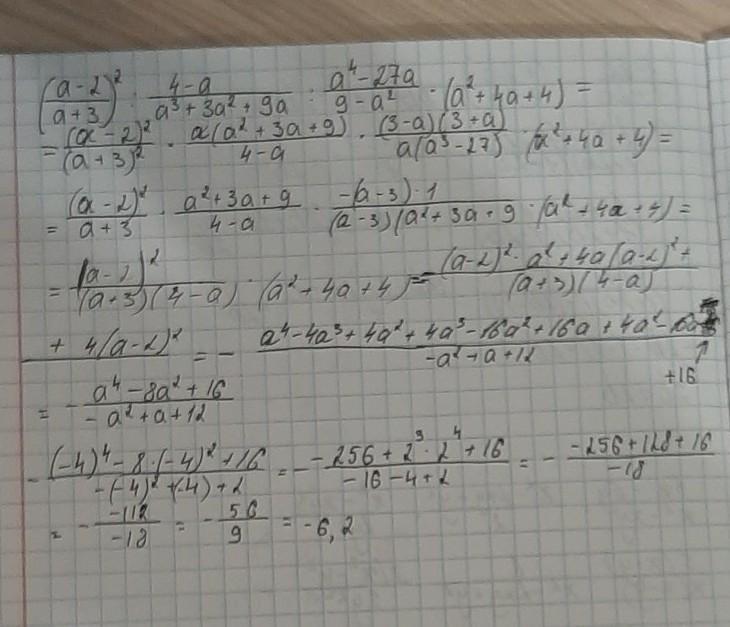 ((a-2)/(a+3))² : (4-a)/(a³+3a²+9a) : (a⁴-27a)/(9-a²) · (a²+4a+4) =
= (a-2)²/(a+3)² · a(a²+3a+9)/(4-a) · (3-a)(3+a)/(a(a³-27)) · (a²+4a+4) =
= (a-2)²/(a+3) · (a²+3a+9)/(4-a) · (-(a-3)·1)/((a-3)(a²+3a+9) · (a²+4a+4) =
= (a-2)²/((a+3)(4-a)) · (a²+4a+4) = - ((a-2)²·a²+4a(a-2)²+)/((a+3)(4-a))
+ 4(a-2)² = - (a⁴-4a³+4a²+4a³-16a²+16a+4a²-16a)/(-a²+a+12)
+16
= - (a⁴-8a²+16)/(-a²+a+12)
- ((-4)⁴-8·(-4)²+16)/(-(-4)²+(-4)+2) = - (-256+2³·2⁴+16)/(-16-4+2) = - (-256+128+16)/(-18)
= - (-112)/(-18) = - 56/9 = -6,2